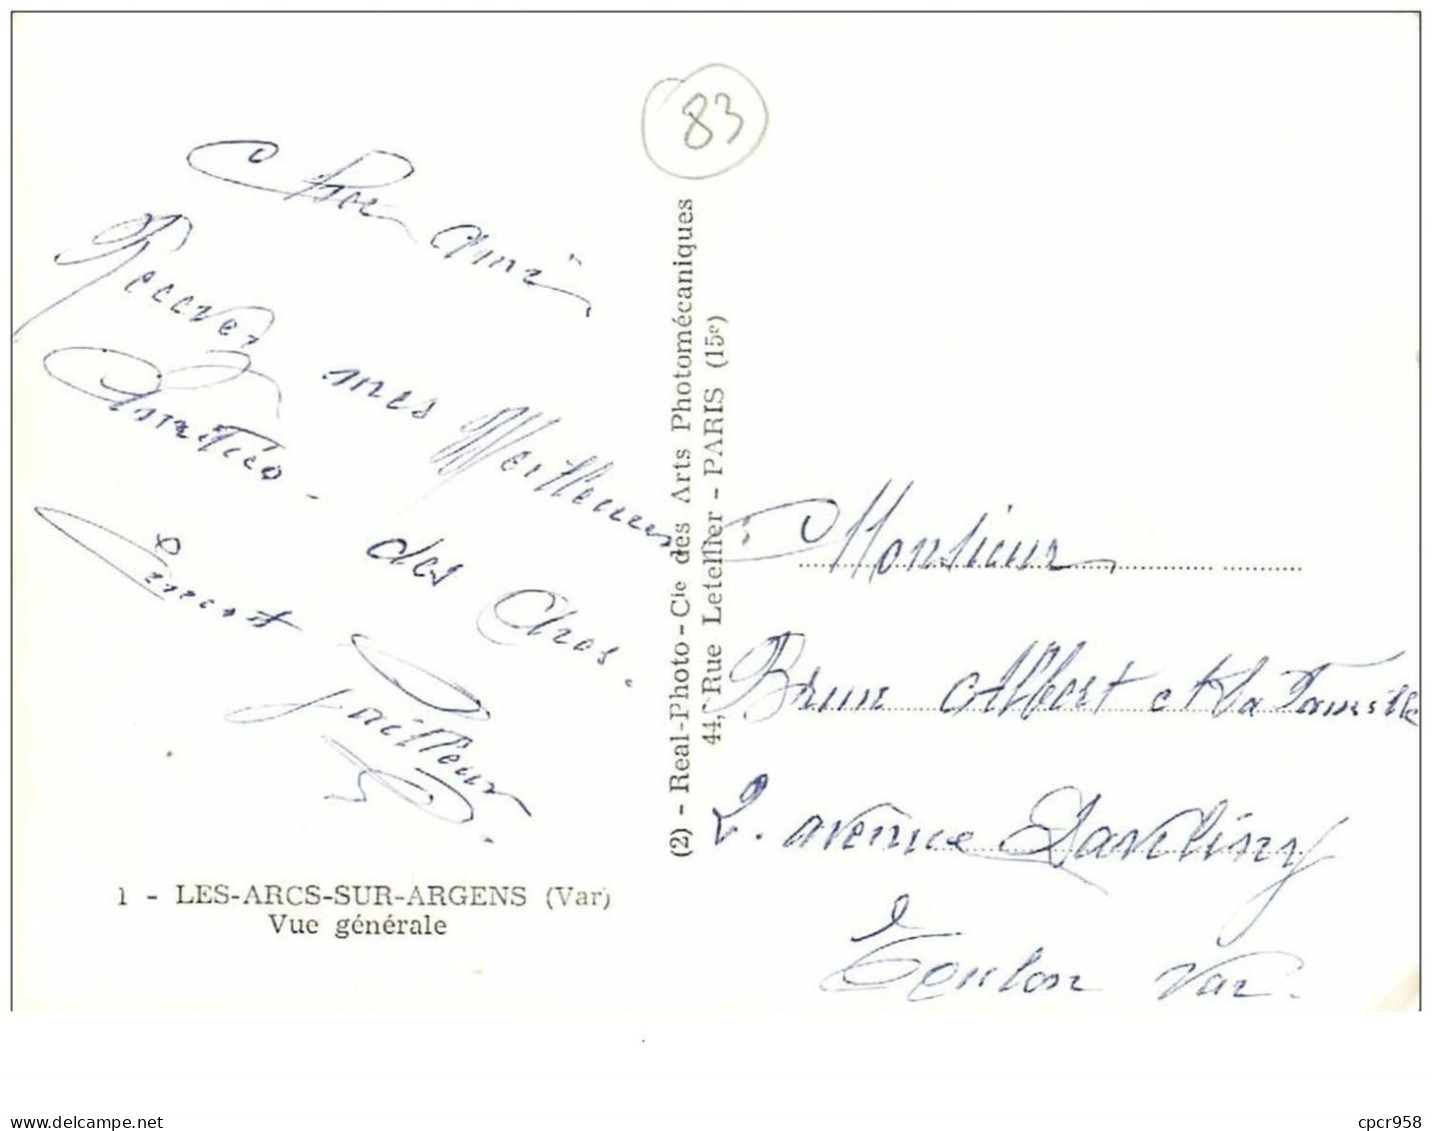 83
Cher ami
Recevez mes Meilleures
Amitiés - des Arcs.
Ernest
Jailleur
1 - LES-ARCS-SUR-ARGENS (Var)
Vue générale
(2) - Real-Photo - Cie des Arts Photomécaniques
44, Rue Letellier - PARIS (15e)
Monsieur
Brun Albert et la Famille
2. avenue
Toulon Var.
delcampe.net
cpcr958